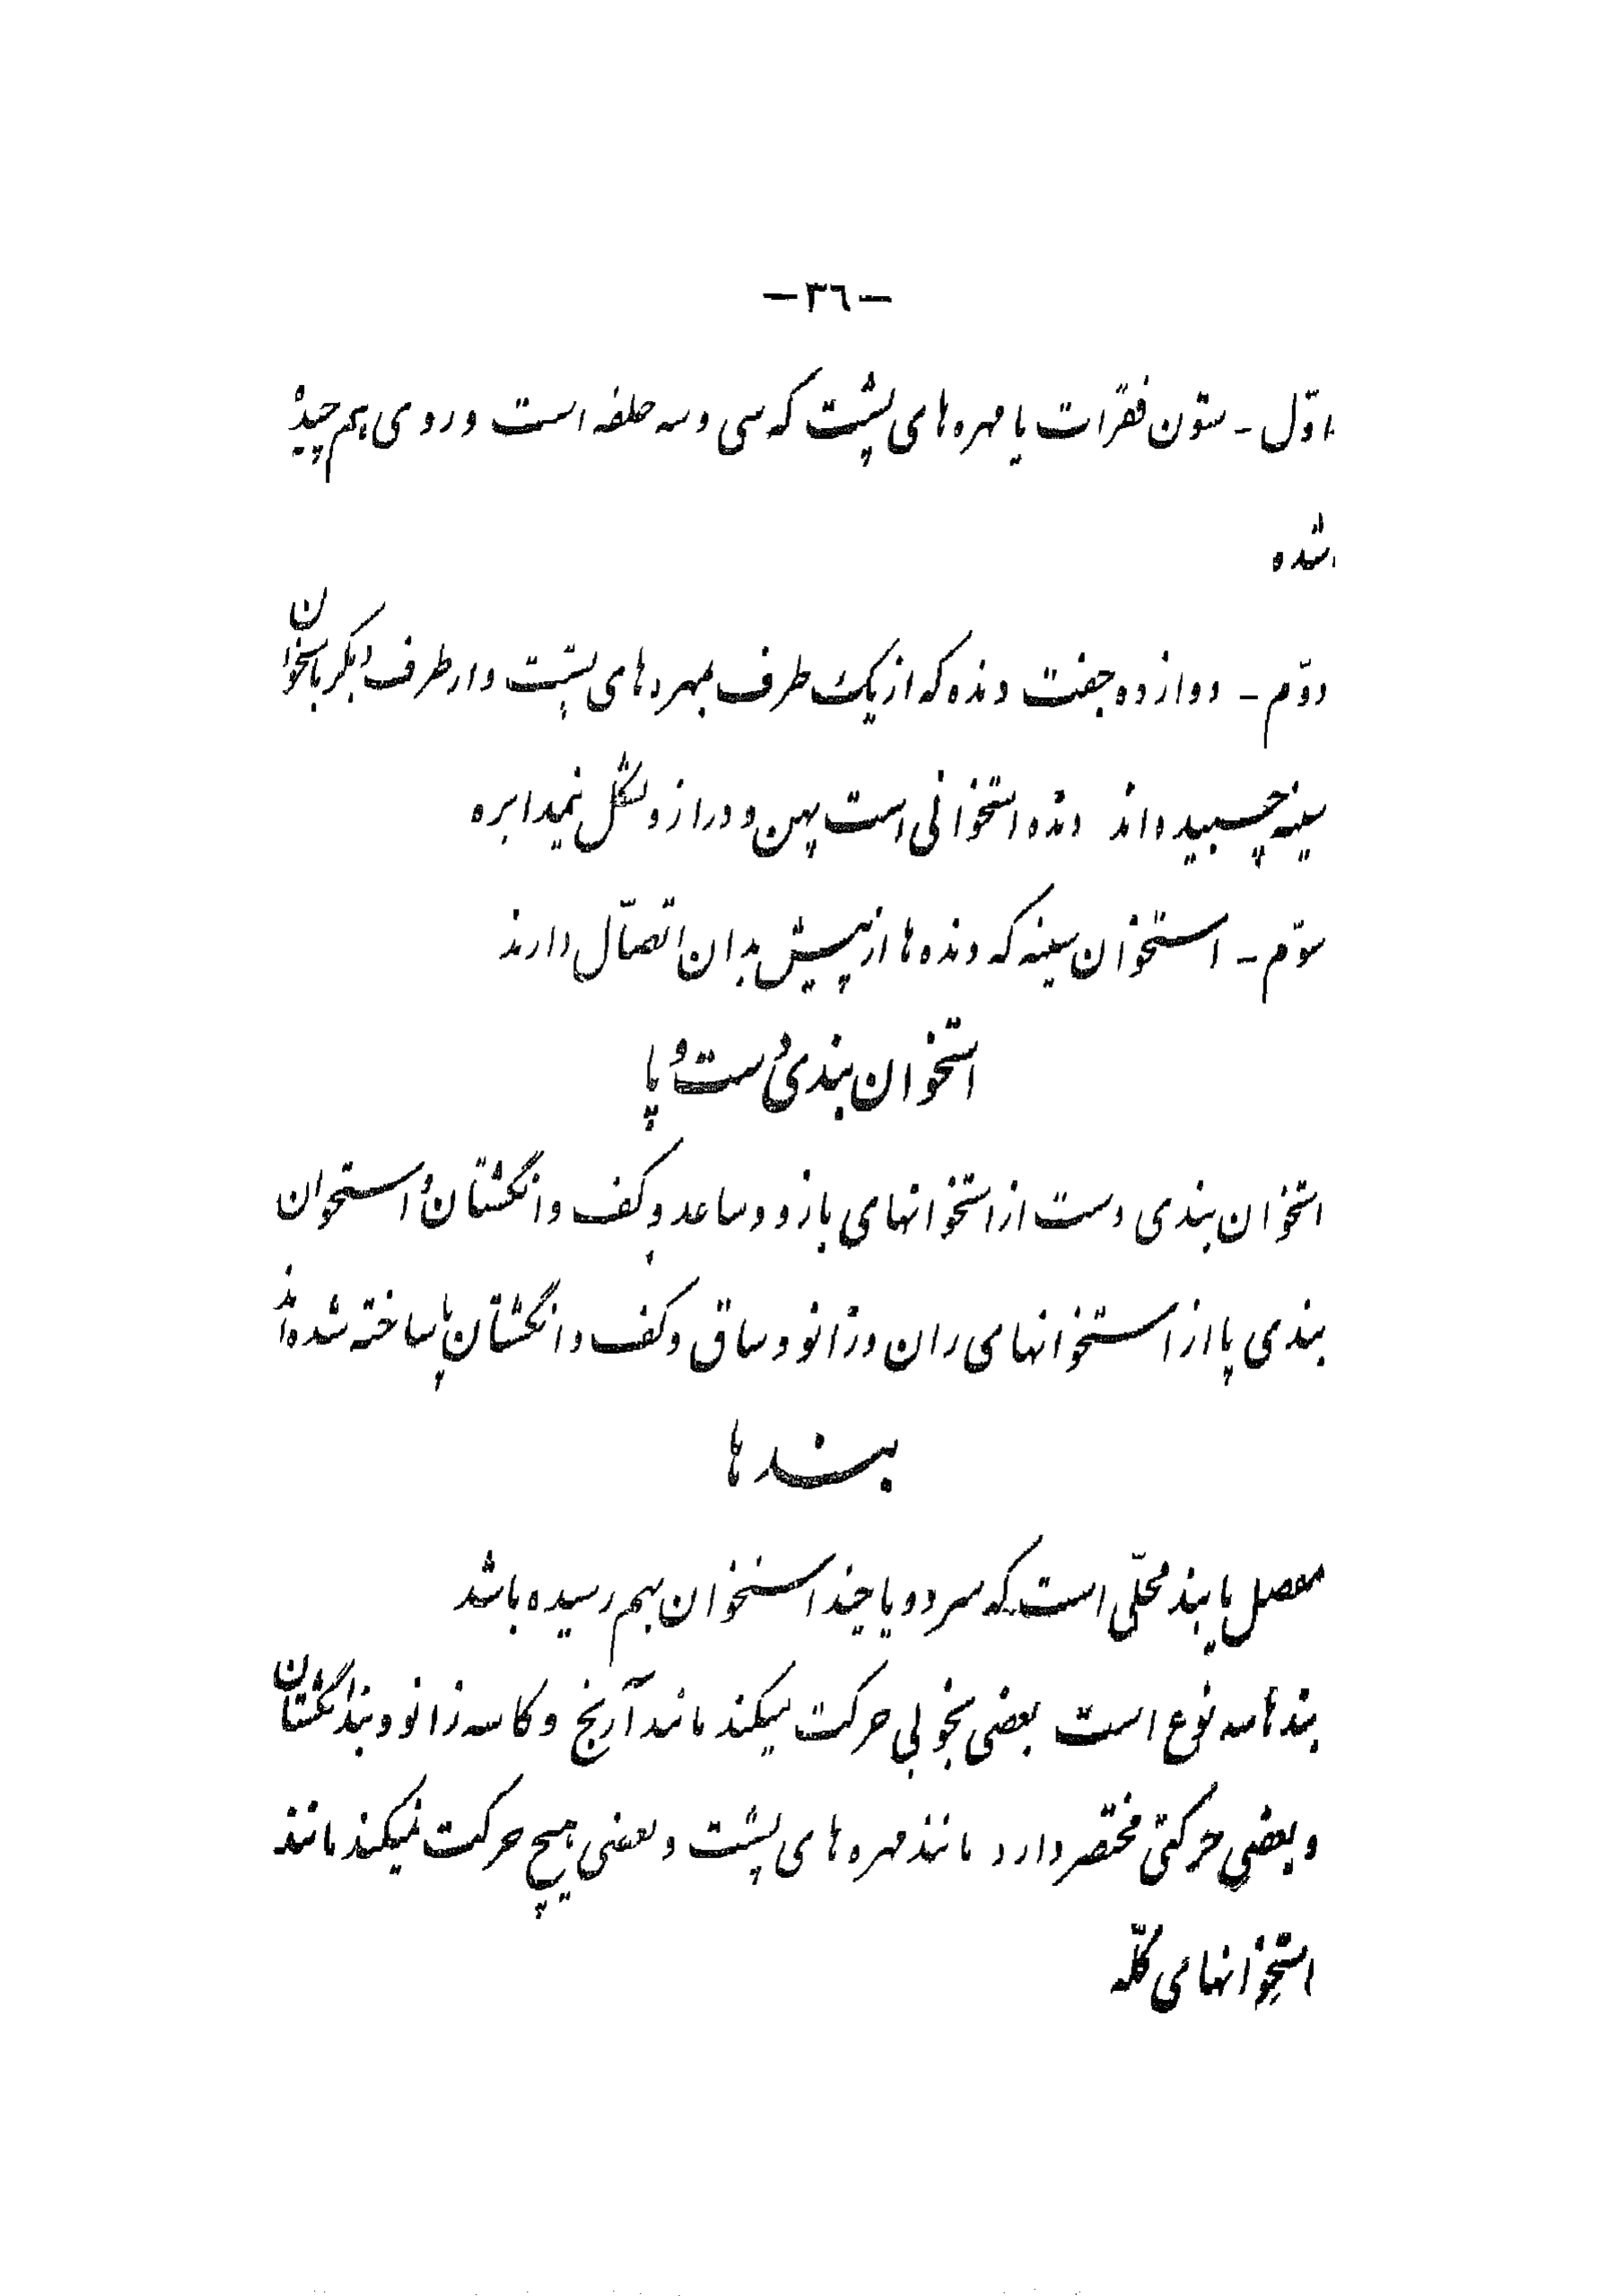 — ٣٦ —
اوّل - ستون فقرات یا مهره‌های پشت که سی و سه حلقه است و روی هم چیده
شده
دوّم - دوازده جفت دنده که از یک طرف بمهره‌های پشت و از طرف دیگر باستخوان
سینه چسبیده‌اند دنده استخوانی است پهن و دراز و بشکل نیمدایره
سوّم - استخوان سینه که دنده‌ها از پیش بدان اتصّال دارند
استخوان بندی دست و پا
استخوان بندی دست از استخوانهای بازو و ساعد و کف و انگشتان و استخوان
بندی پا از استخوانهای ران و زانو و ساق و کف و انگشتان پا ساخته شده‌اند
بندها
مفصل یا بند محلّی است که سر دو یا چند استخوان بهم رسیده باشد
بندها سه نوع است بعضی بخوبی حرکت میکند مانند آرنج و کاسه زانو و بند انگشتان
و بعضی حرکتی مختصر دارد مانند مهره‌های پشت و بعضی هیچ حرکت نمیکند مانند
استخوانهای کلّه